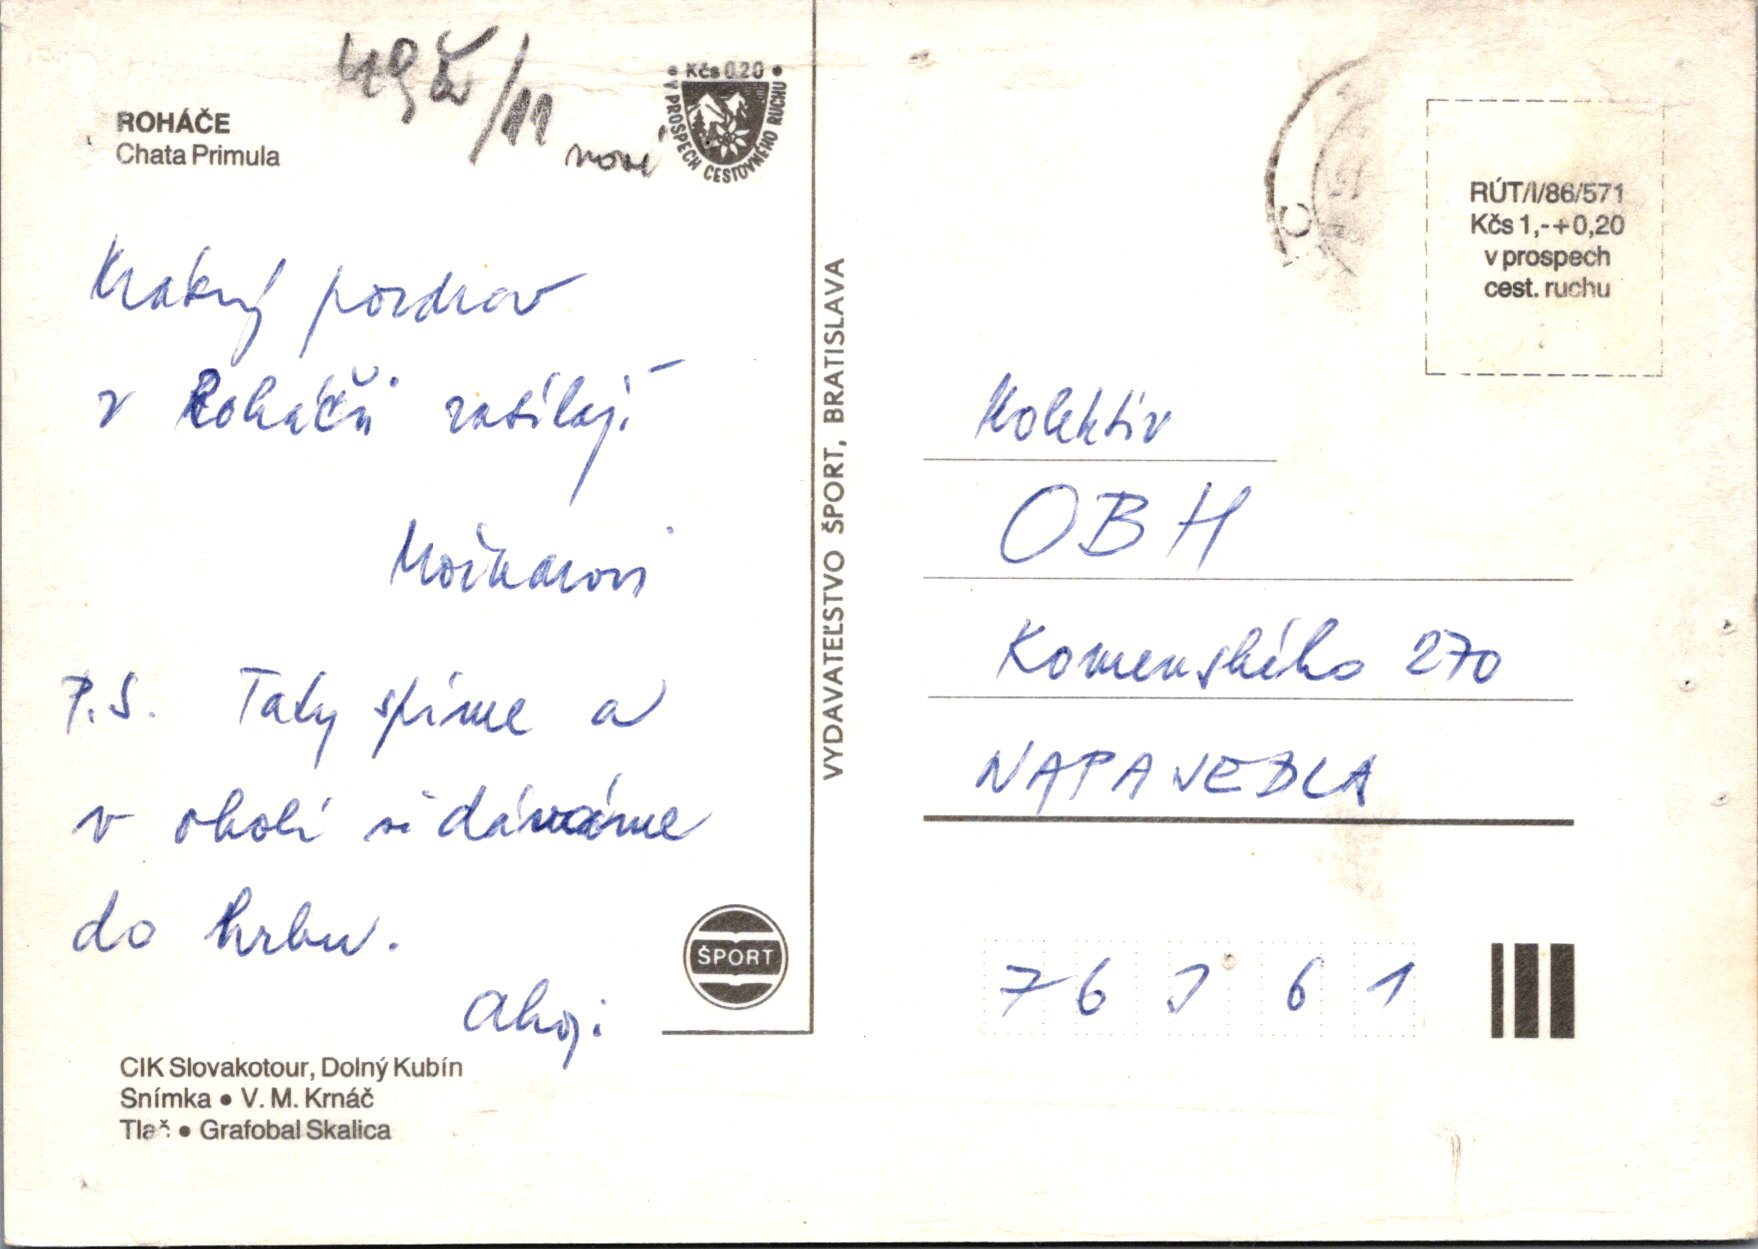 ROHÁČE
Chata Primula
nové
• Kčs 0.20 •
V PROSPECH CESTOVNÉHO RUCHU
Krásný pozdrav
z Roháčů zasílají
P.S. Tady spíme a
v okolí si dáváme
do hrbu.
Ahoj.
ŠPORT
CIK Slovakotour, Dolný Kubín
Snímka • V. M. Krnáč
Tlač • Grafobal Skalica
VYDAVATEĽSTVO ŠPORT, BRATISLAVA
RÚT/I/86/571
Kčs 1,-+0,20
v prospech
cest. ruchu
Kolektiv
OBH
Komenského 270
NAPAJEDLA
76361